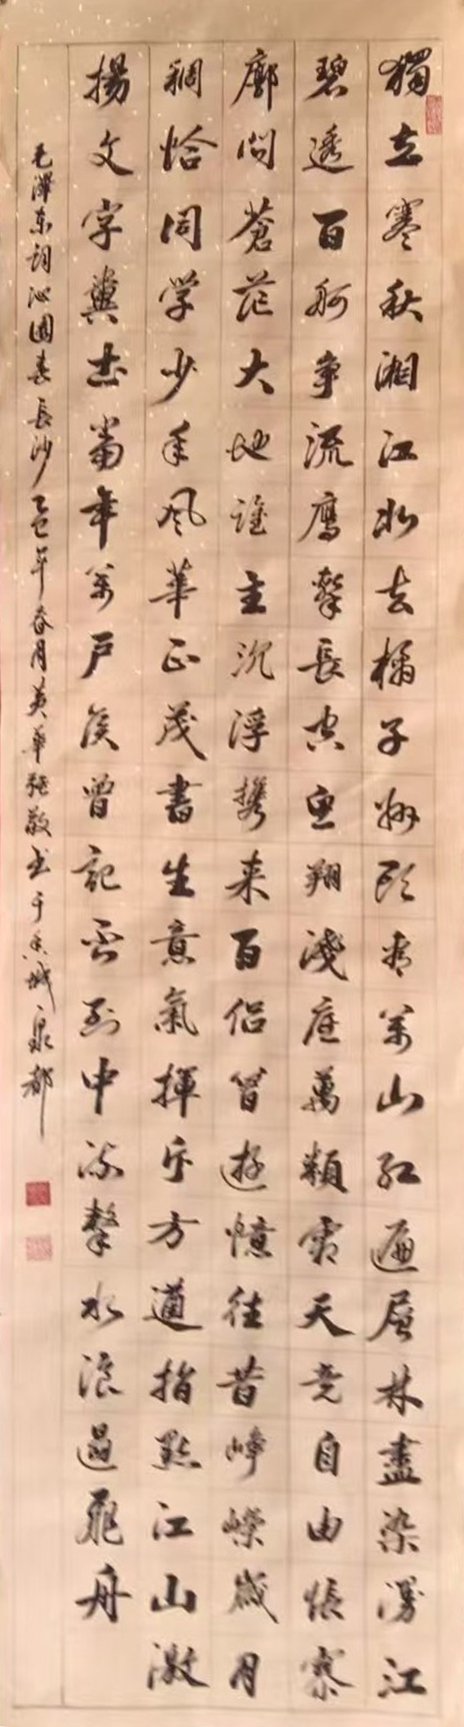 獨立寒秋湘江北去橘子洲頭看萬山红遍層林盡染漫江
碧透百舸争流鹰擊長空魚翔淺底萬類霜天竞自由悵寥
廓问蒼茫大地誰主沉浮携来百侣曾遊憶往昔崢嶸歲月
稠恰同学少年风華正茂書生意氣揮斥方遒指點江山激
揚文字糞土當年萬户侯曾記否到中流擊水浪遏飛舟
毛澤东词沁園春長沙乙巳年春月英華張敬书于香城泉都